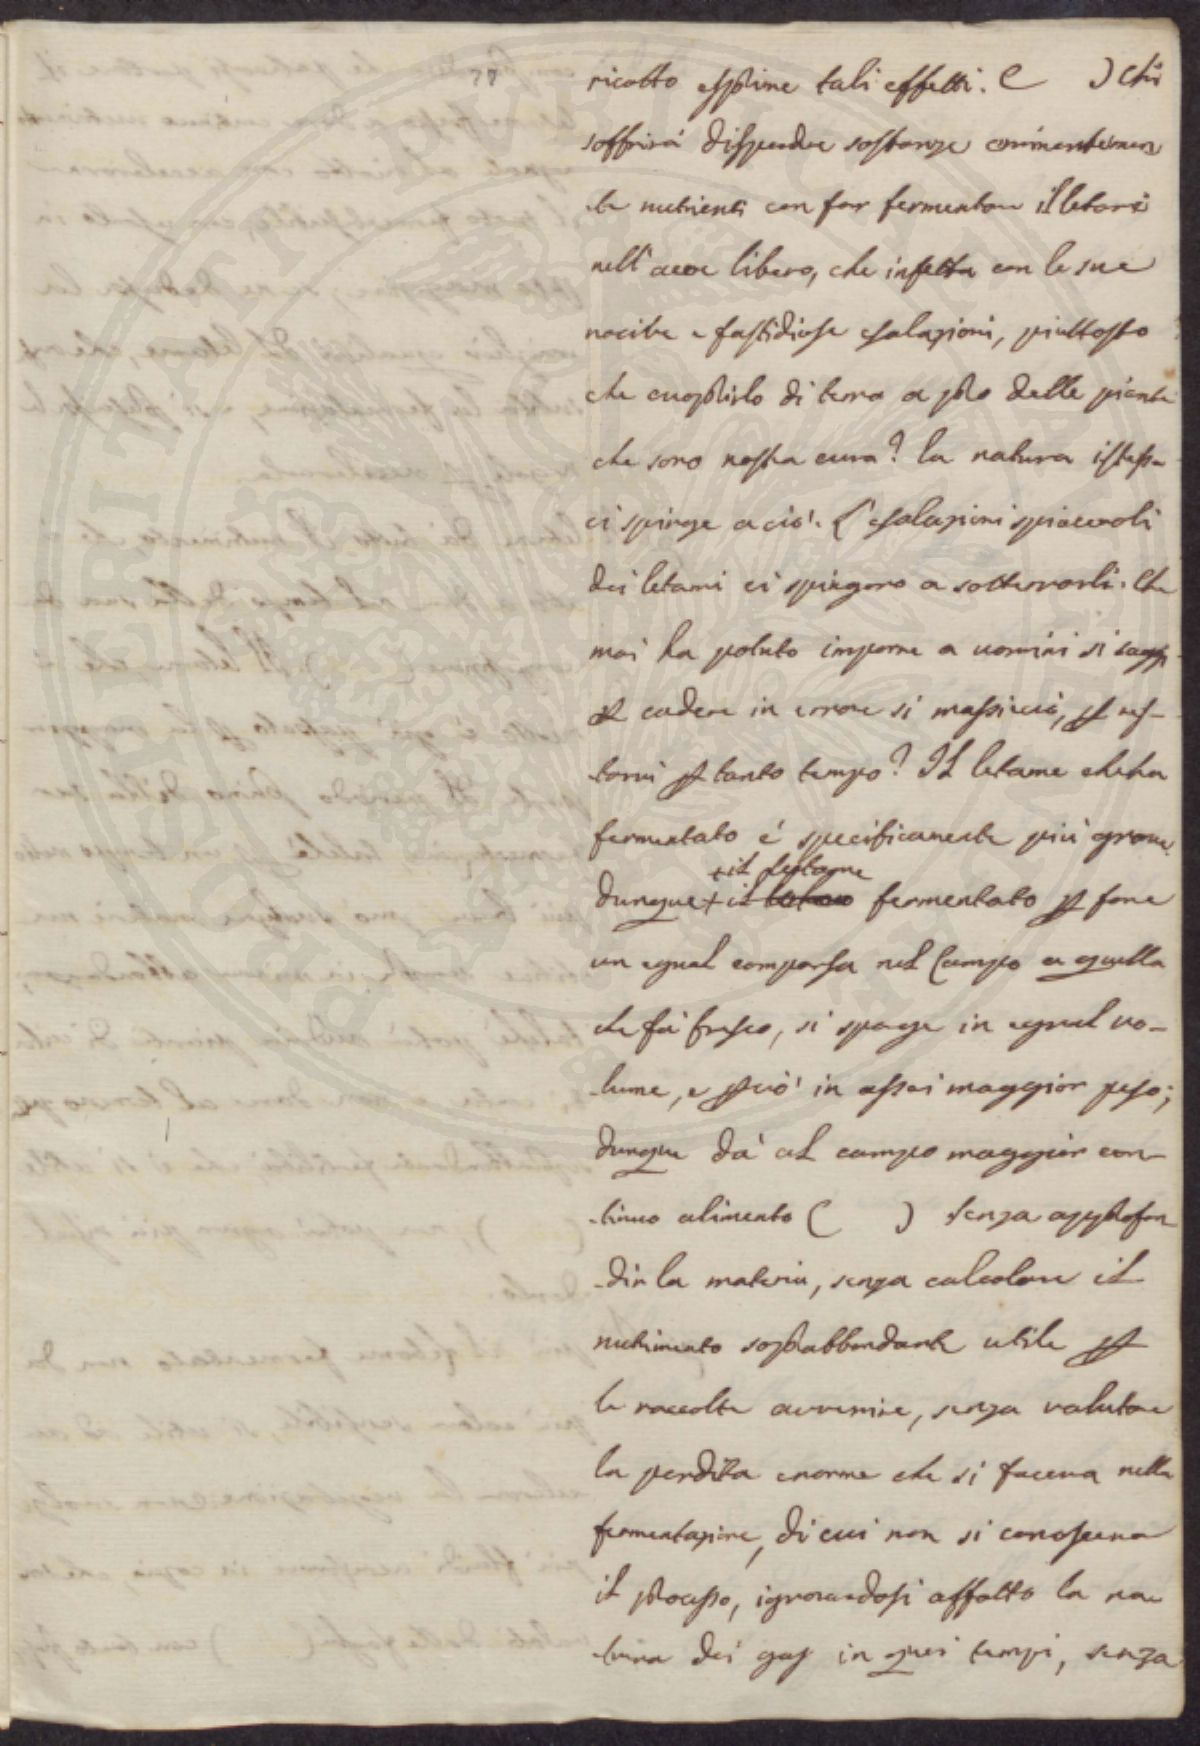 ricotto esprime tali effetti. ( ) Chi
soffrirà disperdere sostanze eminentemen
te nutrienti con far fermentare il letame
nell'aere libero, che infetta con le sue
nocive e fastidiose esalazioni, piuttosto
che cuoprirlo di terra a pro delle piante
che sono nostra cura? la natura istessa
ci spinge a ciò. L'esalazioni spiacevoli
dei letami ci spingono a sotterrarli. Che
mai ha potuto imporre a uomini si saggi
cadere in errore si massiccio, e res-
tarvi p tanto tempo? Il letame che ha
fermentato é specificamente più grave.
+ il letame
dunque + il fermentato p fare
un egual comparsa nel Campo a quella
che fà fresco, si sparge in egual vo-
lume, e pciò in assai maggior peso;
dunque dà al campo maggior con-
tinuo alimento ( ) senza approfon
dir la materia, senza calcolare il
nutrimento soprabbondante utile p
le raccolte avvenire, senza valutare
la perdita enorme che si faceva nella
fermentazione, di cui non si conosceva
il processo, ignorandosi affatto la na
tura dei gas in quei tempi, senza